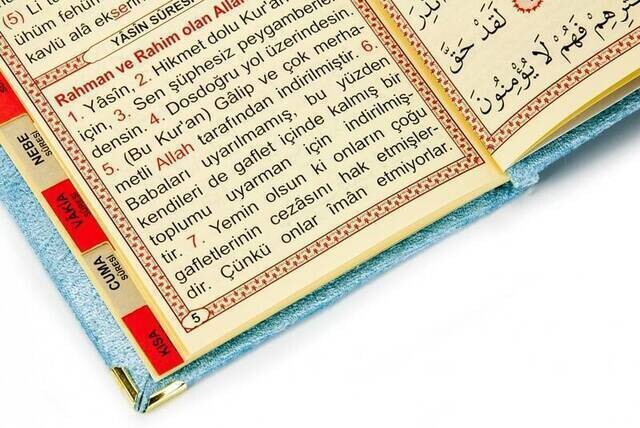 (5) Li tü
ühüm fehüm
kavlü alâ ekserih
YÂSÎN SÛRESİ
Rahman ve Rahim olan Allah
1. Yâsîn, 2. Hikmet dolu Kur'an
için, 3. Sen şüphesiz peygamberler
densin. 4. Dosdoğru yol üzerindesin.
5. (Bu Kur'an) Gâlip ve çok merha-
metli Allah tarafından indirilmiştir. 6.
Babaları uyarılmamış, bu yüzden
kendileri de gaflet içinde kalmış bir
toplumu uyarman için indirilmiş-
tir. 7. Yemin olsun ki onların çoğu
gafletlerinin cezasını hak etmişler-
dir. Çünkü onlar imân etmiyorlar.
5
لَقَدْ حَقَّ
فَهُمْ لَا يُؤْمِنُونَ
NEBE
SÛRESİ
VÂKIA
SÛRESİ
CUMA
SÛRESİ
KISA